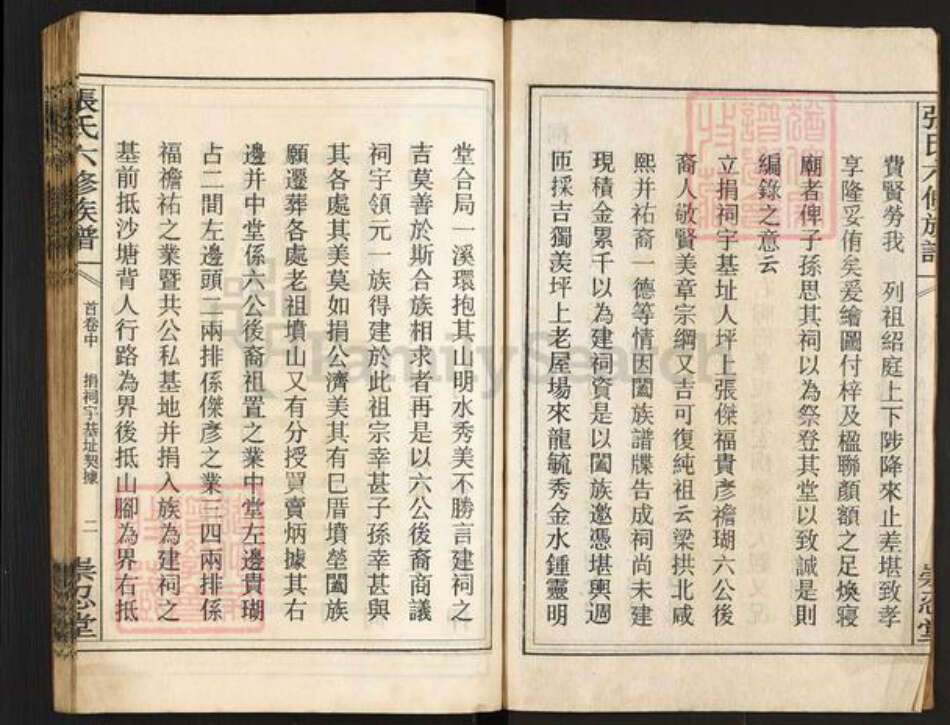 張氏六修族譜
崇忍堂
費賢勞我 列祖紹庭上下陟降來止差堪致孝
享隆妥侑矣爰繪圖付梓及楹聯顏額之足煥寢
廟者俾子孫思其祠以為祭登其堂以致誠是則
編錄之意云
立捐祠宇基址人坪上張傑福貴彥襜瑚六公後
裔人敬賢美章宗綱又吉可復純祖云梁拱北咸
熙并祐裔一德等情因闔族譜牒告成祠尚未建
現積金累千以為建祠資是以闔族邀憑堪輿週
匝採吉獨羨坪上老屋場來龍毓秀金水鍾靈明
堂合局一溪環抱其山明水秀美不勝言建祠之
吉莫善於斯合族相求者再是以六公後裔商議
祠宇領元一族得建於此祖宗幸甚子孫幸甚與
其各處其美莫如捐公濟美其有巳厝墳塋闔族
願遷葬各處老祖墳山又有分授買賣炳據其右
邊并中堂係六公後裔祖置之業中堂左邊貴瑚
占二間左邊頭二兩排係傑彥之業三四兩排係
福襜祐之業暨共公私基地并捐入族為建祠之
基前抵沙塘背人行路為界後抵山腳為界右抵
張氏六修族譜
首卷中 捐祠宇基址契據 二
崇忍堂
FamilySearch